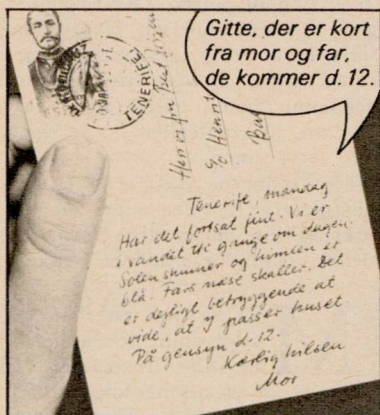 Gitte, der er kort
fra mor og far,
de kommer d. 12.
TENERIFE
Tenerife, mandag
Har det fortsat fint. Vi er
i vandet tre gange om dagen.
Solen skinner og himlen er
blå. Fars næse skaller. Det
er dejligt betryggende at
vide, at I passer huset
På gensyn d. 12.
Kærlig hilsen
Mor